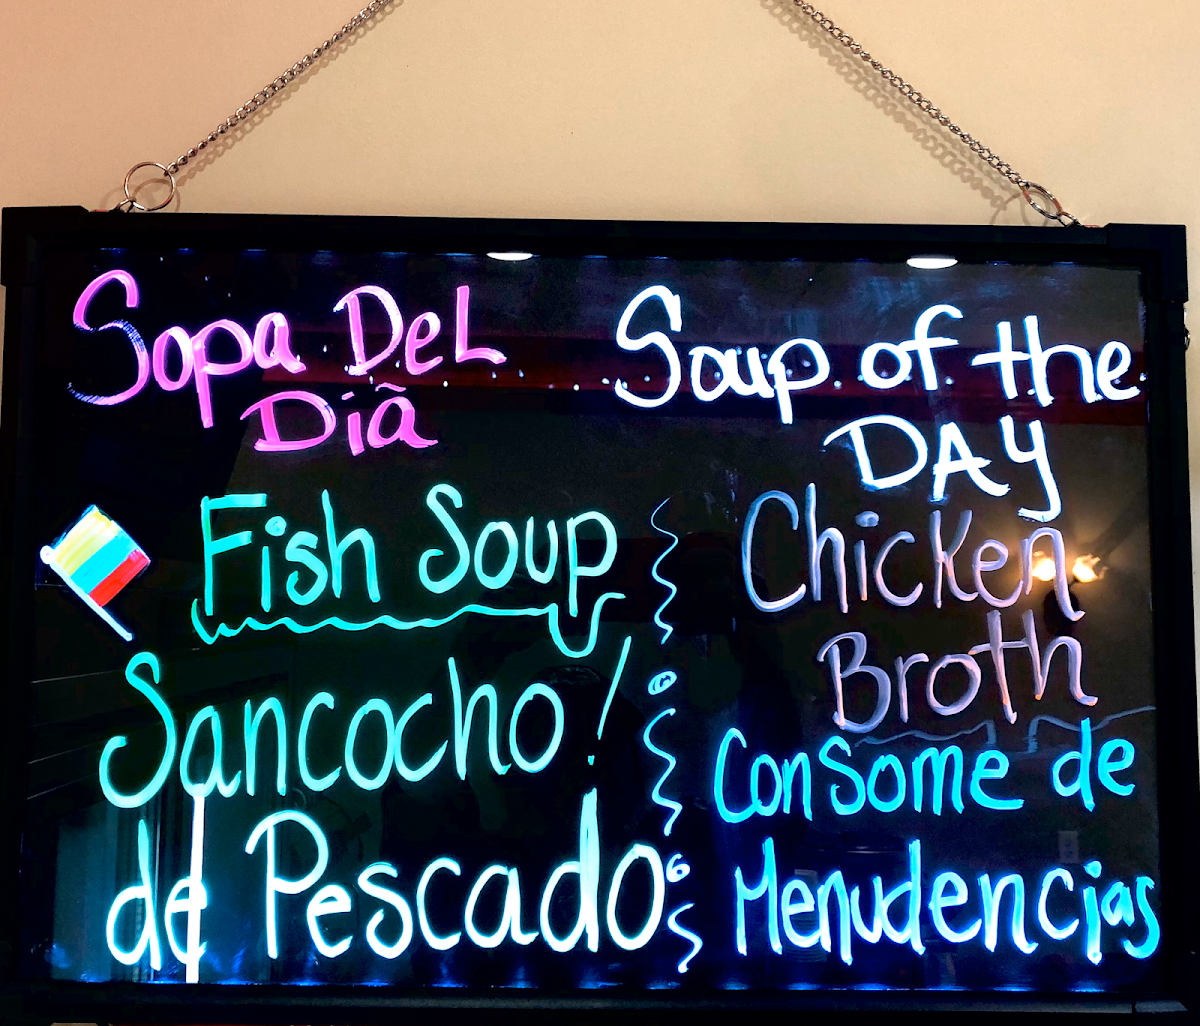 Sopa Del
Diã
Fish Soup
Sancocho!
de Pescado
Soup of the
DAY
Chicken
Broth
Consome de
Menudencias